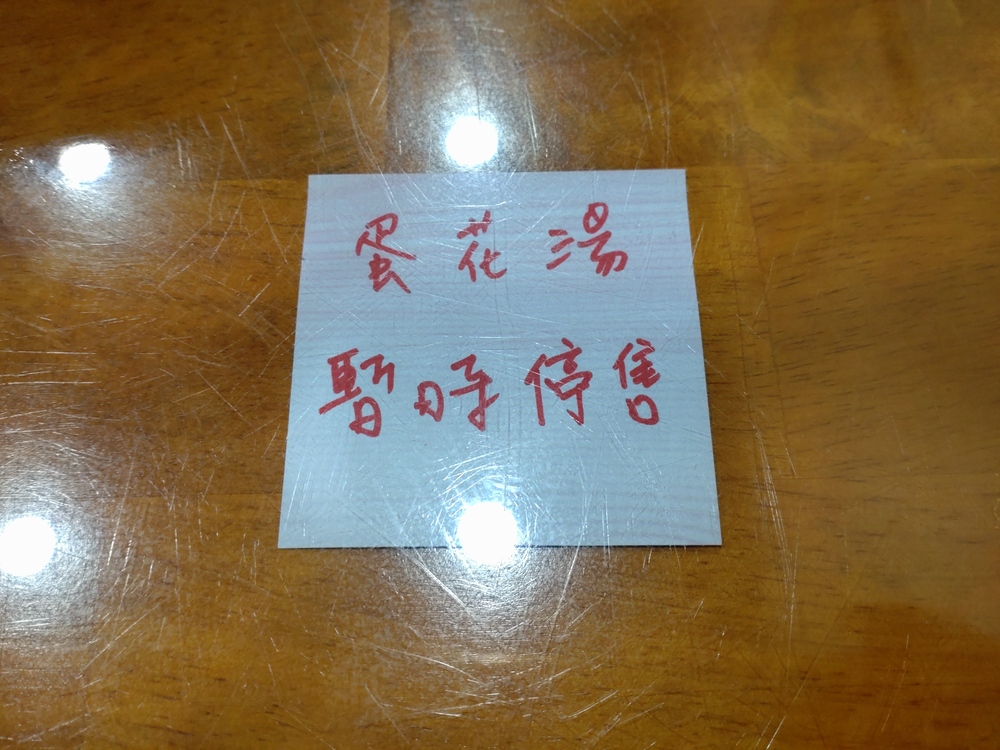 蛋花湯
暫時停售